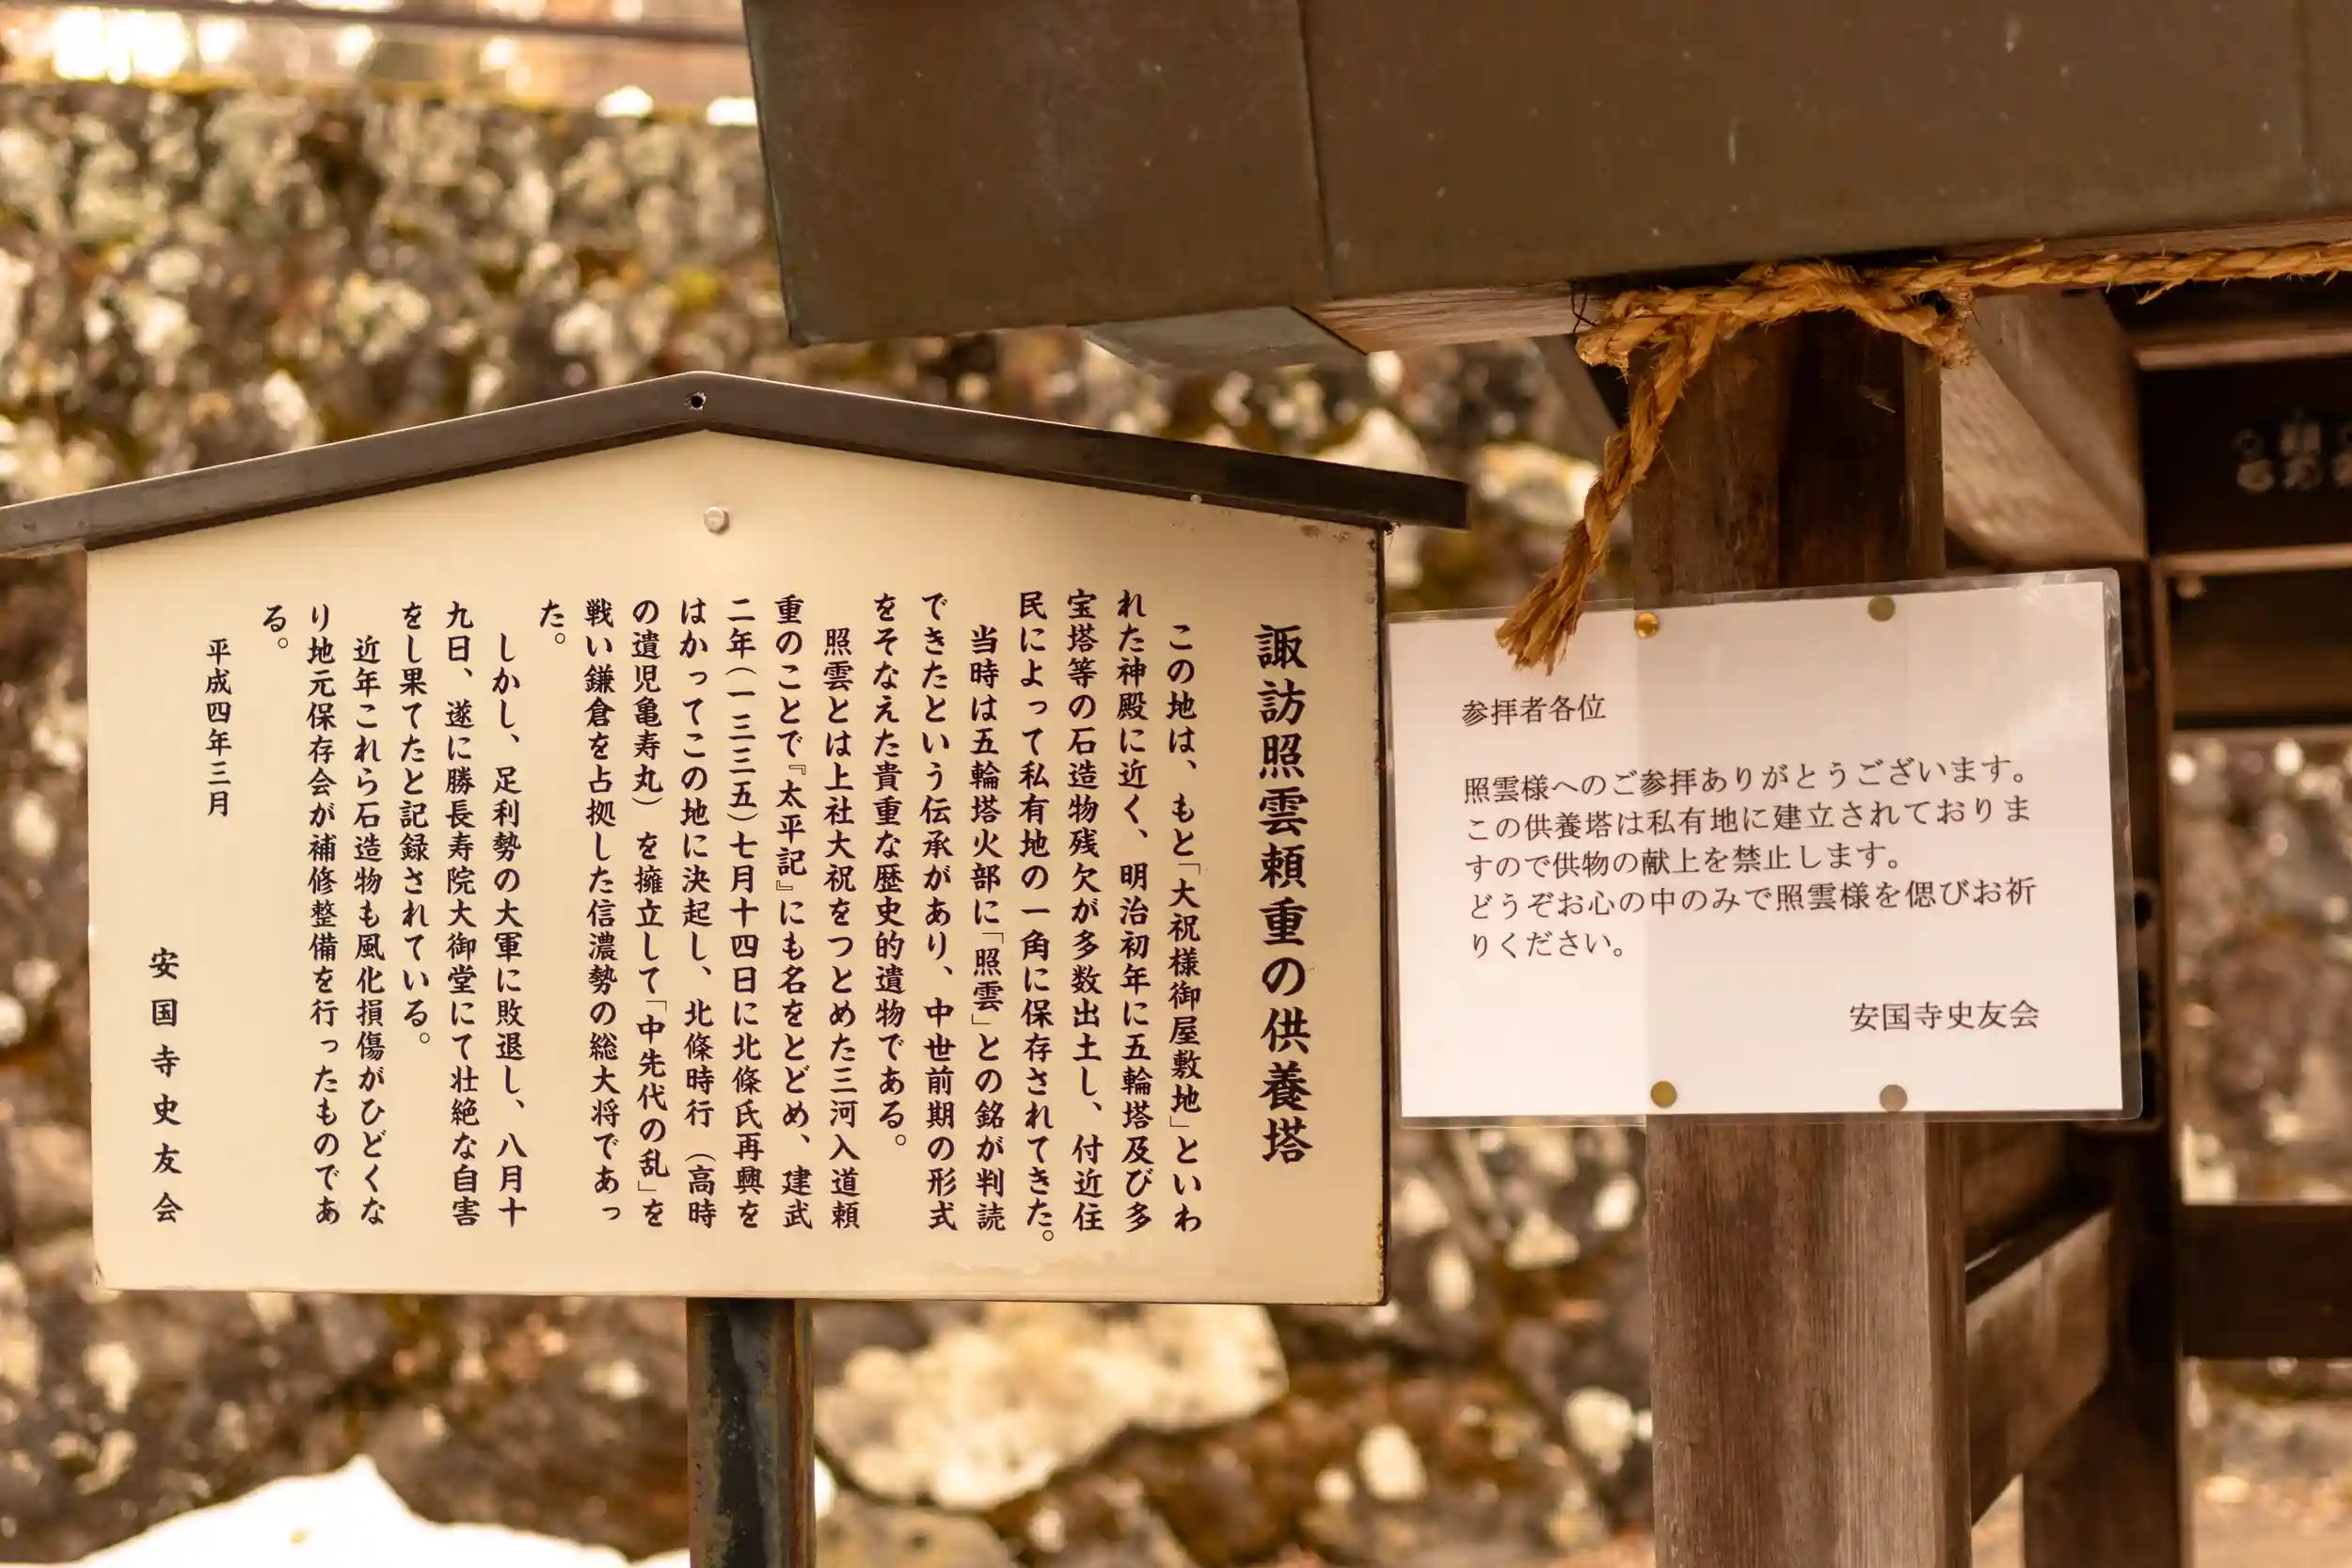 諏訪照雲頼重の供養塔
この地は、もと「大祝様御屋敷地」といわ
れた神殿に近く、明治初年に五輪塔及び多
宝塔等の石造物残欠が多数出土し、付近住
民によって私有地の一角に保存されてきた。
当時は五輪塔火部に「照雲」との銘が判読
できたという伝承があり、中世前期の形式
をそなえた貴重な歴史的遺物である。
照雲とは上社大祝をつとめた三河入道頼
重のことで『太平記』にも名をとどめ、建武
二年(一三三五)七月十四日に北條氏再興を
はかってこの地に決起し、北條時行(高時
の遺児亀寿丸)を擁立して「中先代の乱」を
戦い鎌倉を占拠した信濃勢の総大将であっ
た。
しかし、足利勢の大軍に敗退し、八月十
九日、遂に勝長寿院大御堂にて壮絶な自害
をし果てたと記録されている。
近年これら石造物も風化損傷がひどくな
り地元保存会が補修整備を行ったものであ
る。
平成四年三月
安国寺史友会
参拝者各位
照雲様へのご参拝ありがとうございます。
この供養塔は私有地に建立されておりま
すので供物の献上を禁止します。
どうぞお心の中のみで照雲様を偲びお祈
りください。
安国寺史友会